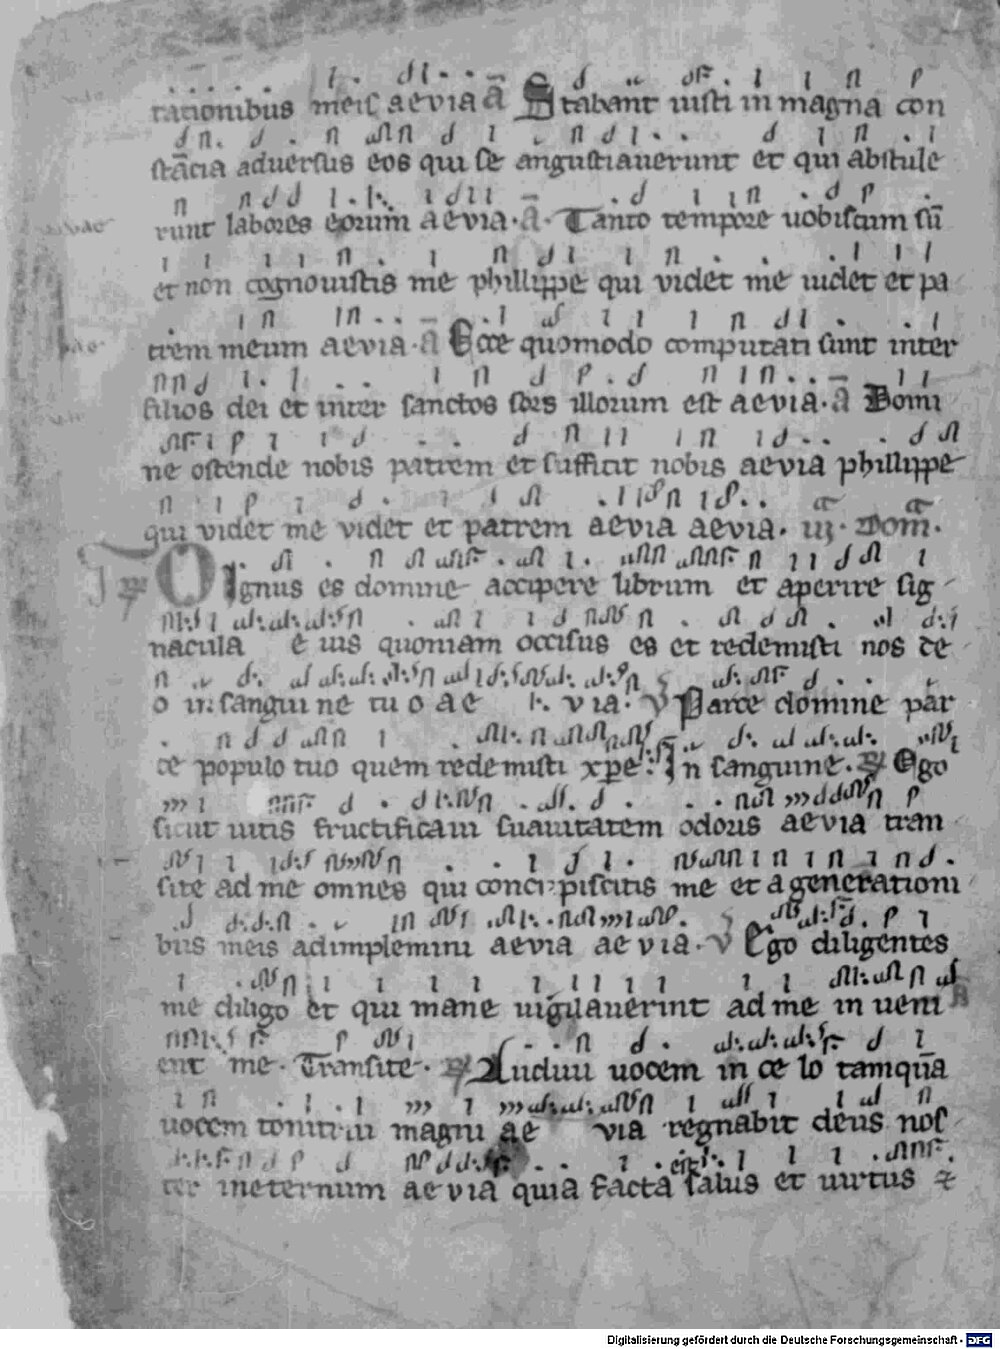 rationibus meis aevia ā Stabant iusti in magna con
stācia adversus eos qui se angustiaverunt et qui abstule
runt labores eorum aevia · ā · Tanto tempore vobiscum sū
et non cognovistis me phillippe qui videt me videt et pa
trem meum aevia · ā Ecce quomodo computati sunt inter
filios dei et inter sanctos sors illorum est aevia · ā Domi
ne ostende nobis patrem et sufficit nobis aevia phillippe
qui videt me videt et patrem aevia aevia · iij · Dom ·
Dignus es domine accipere librum et aperire sig
nacula e ius quoniam occisus es et redemisti nos de
o in sangui ne tu o ae via · V Parce domine par
ce populo tuo quem redemisti xpe · In sanguine · R Ego
sicut vitis fructificavi suavitatem odoris aevia tran
site ad me omnes qui concupiscitis me et a generationi
bus meis adimplemini aevia ae via · V Ego diligentes
me diligo et qui mane vigilaverint ad me in veni
ent me · Transite · R Audivi vocem in ce lo tamquā
vocem tonitrui magni ae via regnabit deus nos
ter in eternum aevia quia facta salus et virtus &
Digitalisierung gefördert durch die Deutsche Forschungsgemeinschaft - DFG